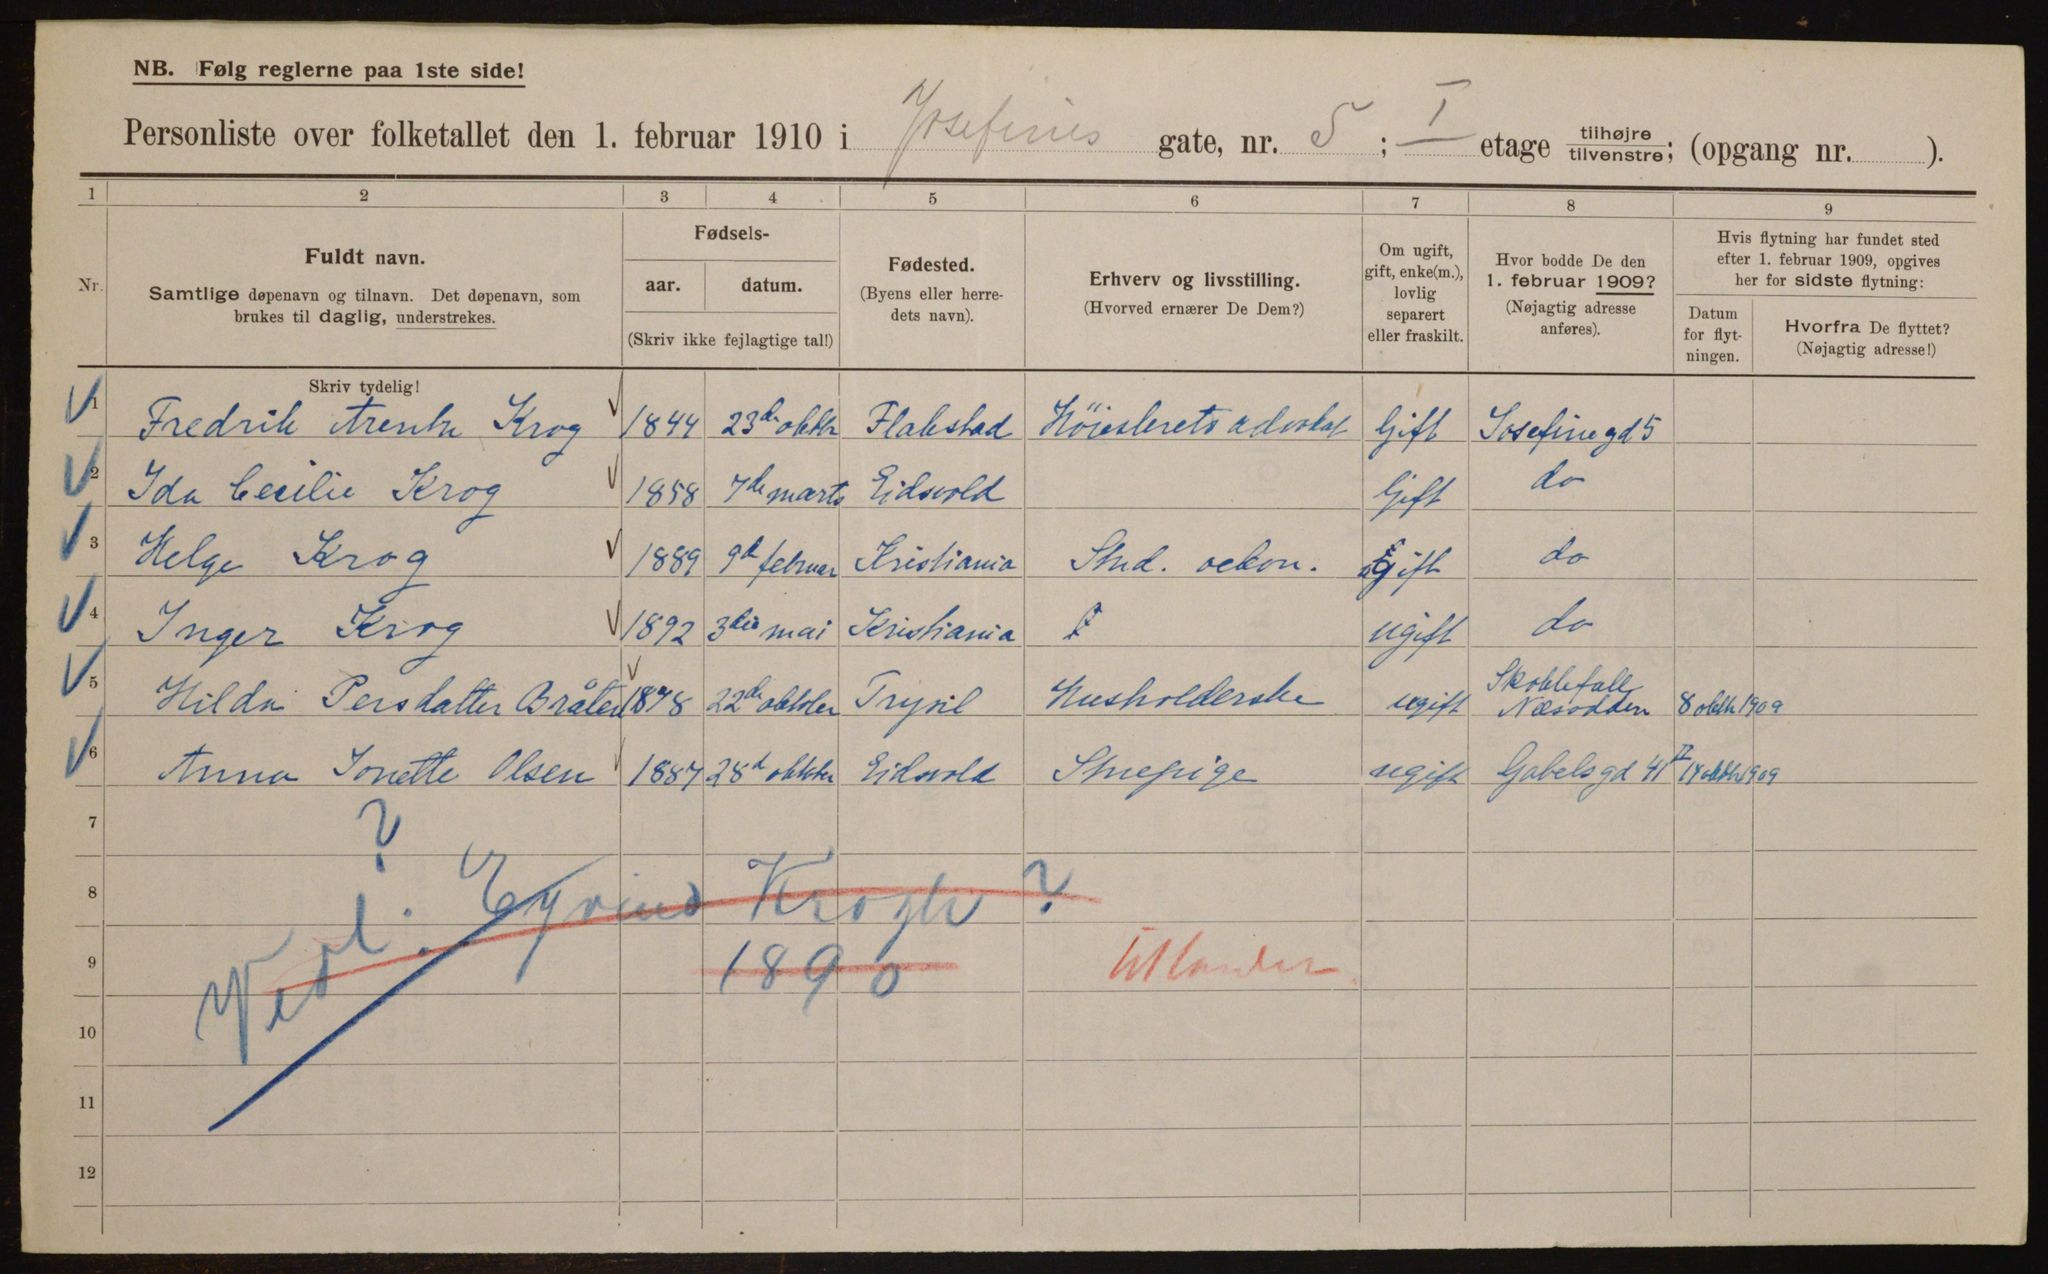 NB. Følg reglerne paa 1ste side!
Personliste over folketallet den 1. februar 1910 i Josefines gate, nr. 5 ; I etage tilhøjre / tilvenstre; (opgang nr. ).
1 2 3 4 5 6 7 8 9
Nr.
Fuldt navn.
Samtlige døpenavn og tilnavn. Det døpenavn, som
brukes til daglig, understrekes.
Fødsels-
aar. datum.
(Skriv ikke fejlagtige tal!)
Fødested.
(Byens eller herre-
dets navn).
Erhverv og livsstilling.
(Hvorved ernærer De Dem?)
Om ugift,
gift, enke(m.),
lovlig
separert
eller fraskilt.
Hvor bodde De den
1. februar 1909?
(Nøjagtig adresse
anføres).
Hvis flytning har fundet sted
efter 1. februar 1909, opgives
her for sidste flytning:
Datum
for flyt-
ningen.
Hvorfra De flyttet?
(Nøjagtig adresse!)
Skriv tydelig!
1 Fredrik Arentz Krog 1844 23de oktbr Flakstad Höiesterets advokat Gift Josefinegd 5
2 Ida Cecilie Krog 1858 7de marts Eidsvold Gift do
3 Helge Krog 1889 9d februar Kristiania Stud. oekon. do
4 Inger Krog 1892 3die mai Kristiania ugift do
5 Hilda Persdatter Bråten 1878 22de oktober Trysil Husholderske ugift Næsodden 8 oktb 1909
6 Anna Jonette Olsen 1887 28d oktober Eidsvold Stuepige ugift Gabelsgd 41 II 14 oktb 1909
7
?
8 Eyvind Krogh ?
9 1890 Utlandet
10
11
12